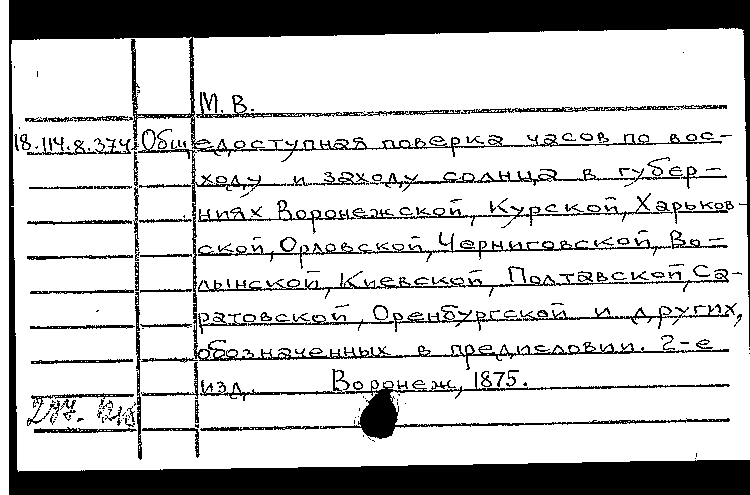 М. В.
18.114.8.374 Общедоступная поверка часов по вос-
ходу и заходу солнца в губер-
ниях Воронежской, Курской, Харьков-
ской, Орловской, Черниговской, Во-
лынской, Киевской, Полтавской, Са-
ратовской, Оренбургской и других,
обозначенных в предисловии. 2-е
изд. Воронеж, 1875.